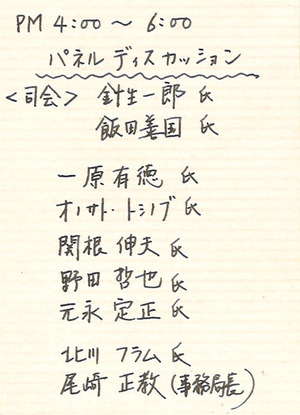 PM 4:00 ~ 6:00
パネルディスカッション
<司会> 針生一郎 氏
飯田善国 氏
一原有徳 氏
オノサト・トシノブ 氏
関根 伸夫 氏
野田 哲也 氏
元永 定正 氏
北川 フラム 氏
尾崎 正教 (事務局長)